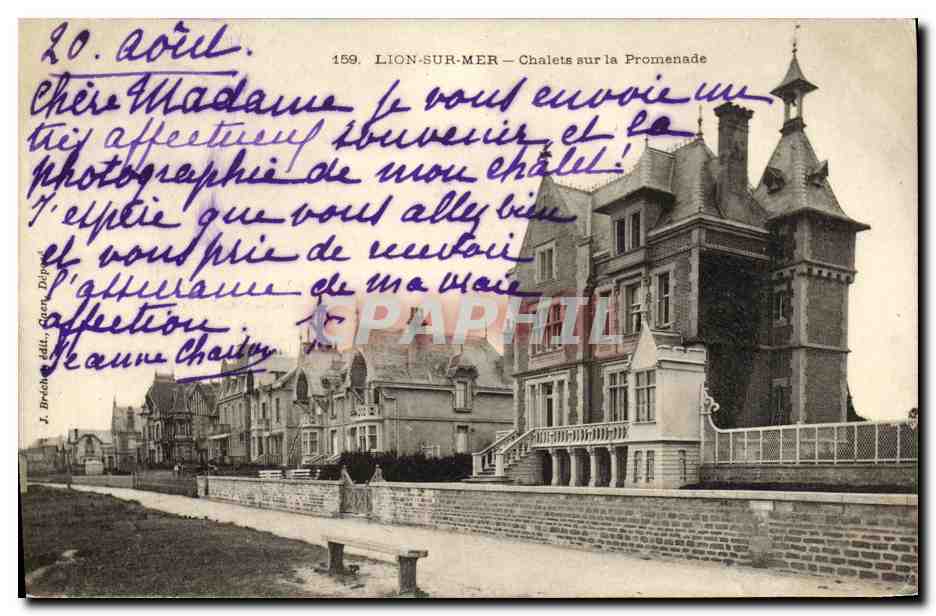 20. Août.
159. LION-SUR-MER — Chalets sur la Promenade
Chère Madame je vous envoie un
très affectueux souvenir et la
photographie de mon châlet!
J'espère que vous allez bien
et vous prie de recevoir
l'assurance de ma vraie
affection.
Jeanne
CPARAMA
CPAPHIL
J. Bréchet édit., Caen, Déposé